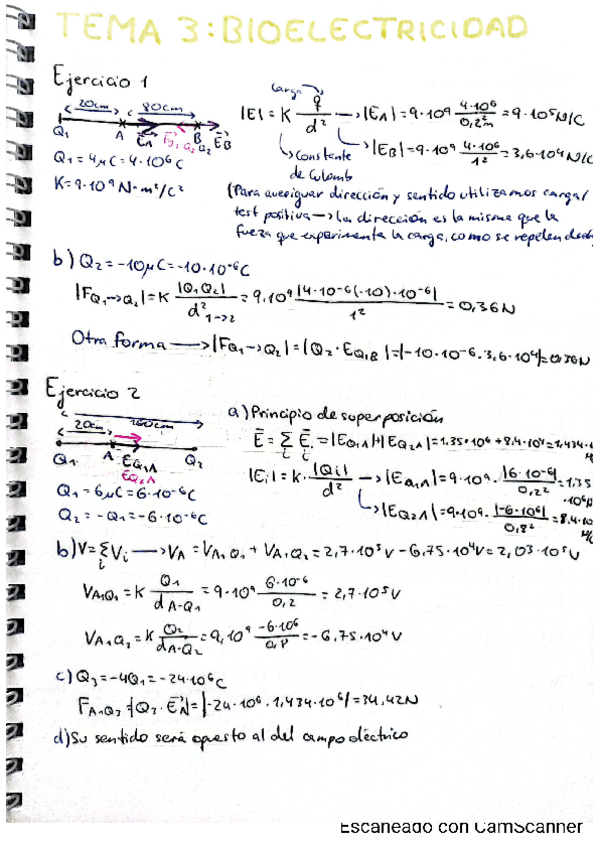 TEMA 3: BIOELECTRICIDAD
Ejercicio 1
20cm 80cm
Q₁ A E⃗_A F⃗Q₁Q₂ B Q₂ E⃗_B
Q₁ = 4μC = 4·10⁻⁶C
K = 9·10⁹ N·m²/C²
Carga
|E| = K q/d² → |E_A| = 9·10⁹ 4·10⁻⁶/0,2² = 9·10⁵ N/C
Constante de Coulomb
→ |E_B| = 9·10⁹ 4·10⁻⁶/1² = 3,6·10⁴ N/C
(Para averiguar dirección y sentido utilizamos carga/
test positiva → La dirección es la misma que la
fueza que experimenta la carga, como se repelen
b) Q₂ = -10μC = -10·10⁻⁶C
|F_Q₁→Q₂| = K |Q₁Q₂|/d²₁→₂ = 9·10⁹ |4·10⁻⁶(-10)·10⁻⁶|/1² = 0,36N
Otra forma → |F_Q₁→Q₂| = |Q₂·E_Q₁B| = |-10·10⁻⁶·3,6·10⁴| = 0,36N
Ejercicio 2
20cm 100cm
Q₁ A E⃗Q₁A E⃗Q₂A Q₂
Q₁ = 6μC = 6·10⁻⁶C
Q₂ = -Q₁ = -6·10⁻⁶C
a) Principio de superposición
E⃗ = Σ_i E⃗_i = |E_Q₁A|+|E_Q₂A| = 1,35·10⁶ + 8,4·10⁴ = 1,434·
|E_i| = K·|Q_i|/d² → |E_Q₁A| = 9·10⁹·|6·10⁻⁶|/0,2² = 1,35·10⁶
→ |E_Q₂A| = 9·10⁹·|-6·10⁻⁶|/0,8² = 8,4·10
b) V = Σ_i V_i → V_A = V_A,Q₁ + V_A,Q₂ = 2,7·10⁵V - 6,75·10⁴V = 2,03·10⁵V
V_AQ₁ = K Q₁/d_A-Q₁ = 9·10⁹ 6·10⁻⁶/0,2 = 2,7·10⁵V
V_A,Q₂ = K Q₂/d_A-Q₂ = 9·10⁹ -6·10⁻⁶/0,8 = -6,75·10⁴V
c) Q₃ = -4Q₁ = -24·10⁻⁶C
F_A,Q₃ = |Q₃·E⃗_A| = |-24·10⁻⁶·1,434·10⁶| = 34,42N
d) Su sentido será opuesto al del campo eléctrico
Escaneado con CamScanner